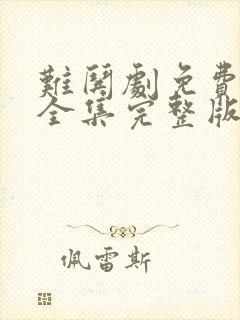 難閱劇免費
全集完整版
佩雷斯